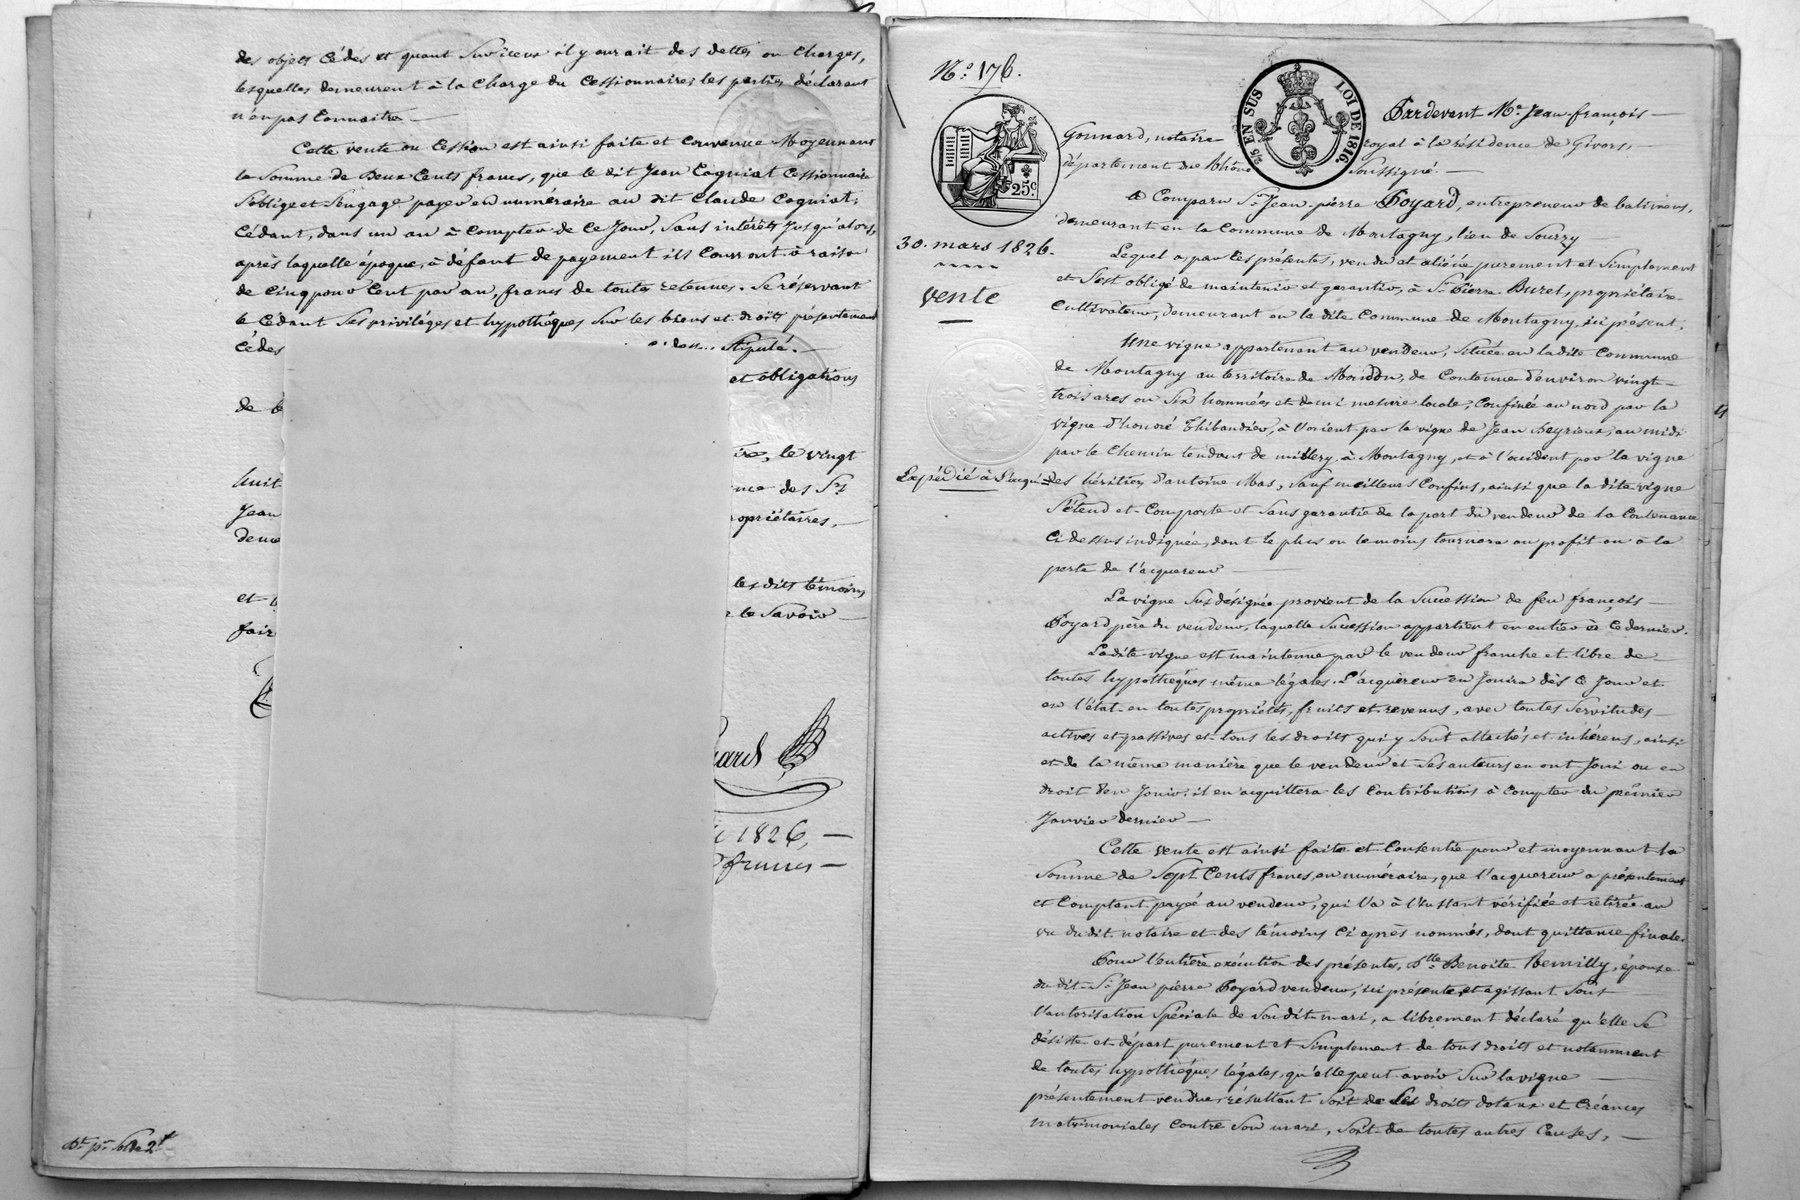 des objets cédes et quant Sur iceux il y aurait des dettes ou charges,
lesquelles demeurent à la Charge du Cessionnaire, les parties déclarant
n'en pas Connaitre —
Cette vente ou Cession est ainsi faite et convenue Moyennant
la Somme de Deux Cents francs, que le dit Jean Cogniat Cessionnaire
S'oblige et S'engage payer en numéraire au dit Claude Cogniat,
Cédant, dans un an à Compter de Ce Jour, Sans intérêts Jusqu'alors,
après laquelle époque, à défaut de payement ils Courront à raison
de Cinq pour Cent par an, francs de toutes retenues. Se réservant
le Cédant Ses priviléges et hypothèques Sur les biens et droits présentement
Cédes Stipulé. —
et obligations
de
le vingt
huit des Srs
Jean ropriétaires, —
deme
et les dits témoins
fair le Savoir —
nard
1826, —
francs —
2f
N.o 176.
25c
5/5 EN SUS LOI DE 1816.
Pardevant Me Jean françois —
Gonnard, notaire royal à la résidence de Givors, —
département du Rhône Soussigné. —
A Comparu Sr Jean-pierre Poyard, entrepreneur de batimens,
demeurant en la Commune de Montagny, lieu de Sourzy —
30. mars 1826.
vente
Lequel a par Ces présentes, vendu et aliéné purement et Simplement
et S'est obligé de maintenir et garantir, à Sr Pierre Buret, propriétaire-
Cultivateur, demeurant en la dite Commune de Montagny, ici présent,
Une vigne appartenant au vendeur, Située en la dite Commune
de Montagny au territoire de de Contenue d'environ vingt-
trois ares ou Six hommées et demi mesure locale, Confinée au nord par la
vigne d'honoré Thibaudier, à l'orient par la vigne de Jean Beyrieux, au midi
par le Chemin tendant de millery à Montagny, et à l'occident par la vigne
Expédié à l'acqur
des héritiers d'antoine Mas, Sauf meilleurs Confins, ainsi que la dite vigne
S'étend et Comporte et Sans garantie de la part du vendeur de la Contenance
Ci dessus indiquée, dont le plus ou le moins tournera au profit ou à la
perte de l'acquereur —
La vigne Susdésignée provient de la Succession de feu françois —
Poyard père du vendeur, laquelle Succession appartient en entier à Ce dernier.
La dite vigne est maintenue par le vendeur franche et libre de —
toutes hypothèques même légales. L'acquéreur en Jouira dès Ce Jour et
en l'état en toutes propriétés, fruits et revenus, avec toutes Servitudes —
actives et passives et tous les droits qui y Sont attachés et inhérens, ainsi
et de la même manière que le vendeur et Ses auteurs en ont Joui ou eu
droit d'en Jouir. il en acquittera les Contributions à Compter du premier
Janvier dernier —
Cette vente est ainsi faite et Consentie pour et moyennant la
Somme de Sept Cents francs, en numéraire, que l'acquereur a présentement
et Comptant payée au vendeur, qui l'a à l'instant vérifiée et retirée au
vu du dit notaire et des témoins Ci après nommés, dont quittance finale.
Pour l'entière exécution des présentes, Dlle Benoite Remilly, épouse
du dit Sr Jean pierre Poyard vendeur, ici présente et agissant Sous
l'autorisation Spéciale de Son dit mari, a librement déclaré qu'elle Se
désiste et départ purement et Simplement de tous droits et notamment
de toutes hypothèques légales, qu'elle peut avoir Sur la vigne —
présentement vendue, résultant Soit de Ses droits dotaux et Créances
matrimoniales Contre Son mari, Soit de toutes autres Causes, —